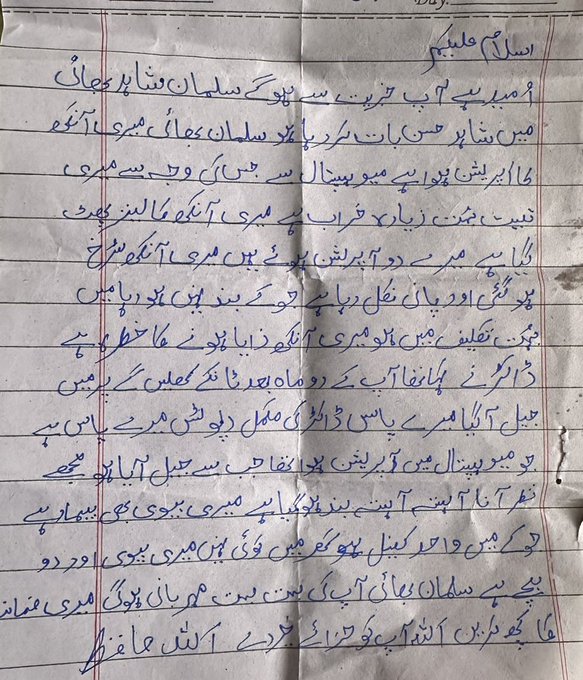 Day.
اسلام علیکم
امید ہے آپ خریت سے ہوگے سلمان شاہد بھائی
میں شاہد حسن بات کر رہا ہو سلمان بھائی میری آنکھ
کا اپریشن ہوا ہے میو ہسپتال سے جس کی وجہ سے میری
تبیت بہت زیادہ خراب ہے میری آنکھ کا لینز پھٹ
گیا ہے میرے دو آپریشن ہوئے ہیں میری آنکھ سرخ
ہو گئی اور پانی نکل رہا ہے جو کے بند نہیں ہو رہا میں
بہت تکلیف میں ہو میری آنکھ ذایا ہونے کا خطرہ ہے
ڈاکٹر نے کہا تھا آپ کے دو ماہ بعد ٹانکے کھلیں گے پر میں
جیل آ گیا میرے پاس ڈاکٹر کی مکمل رپوٹس میرے پاس ہے
جو میو ہسپتال میں آپریشن ہوا تھا جب سے جیل آیا ہو مجھے
نظر آنا آہستہ آہستہ بند ہو گیا ہے میری بیوی بھی بیمار ہے
جو کے میں واحد کفیل ہو گھر میں کوئی نہیں میری بیوی اور دو
بچے ہے سلمان بھائی آپ کی بہت بہت مہربانی ہوگی میری ضمانت
کا کچھ کریں اللہ آپ کو جزائے خیر دے اللہ حافظ